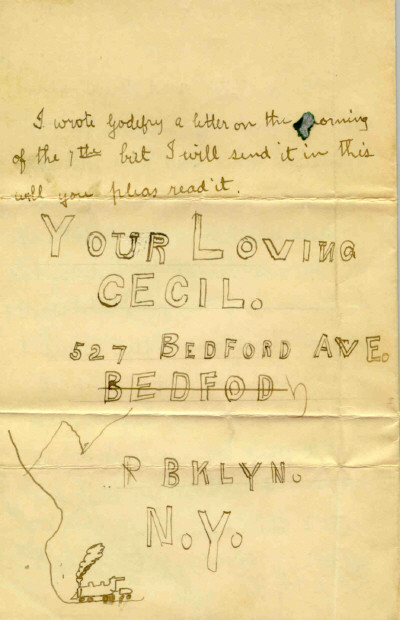 I wrote Godefry a letter on the morning
of the 7th but I will send it in this
will you pleas read it.
YOUR LOVING
CECIL.
527 BEDFORD AVE.
BEDFOD
R BKLYN.
N.Y.